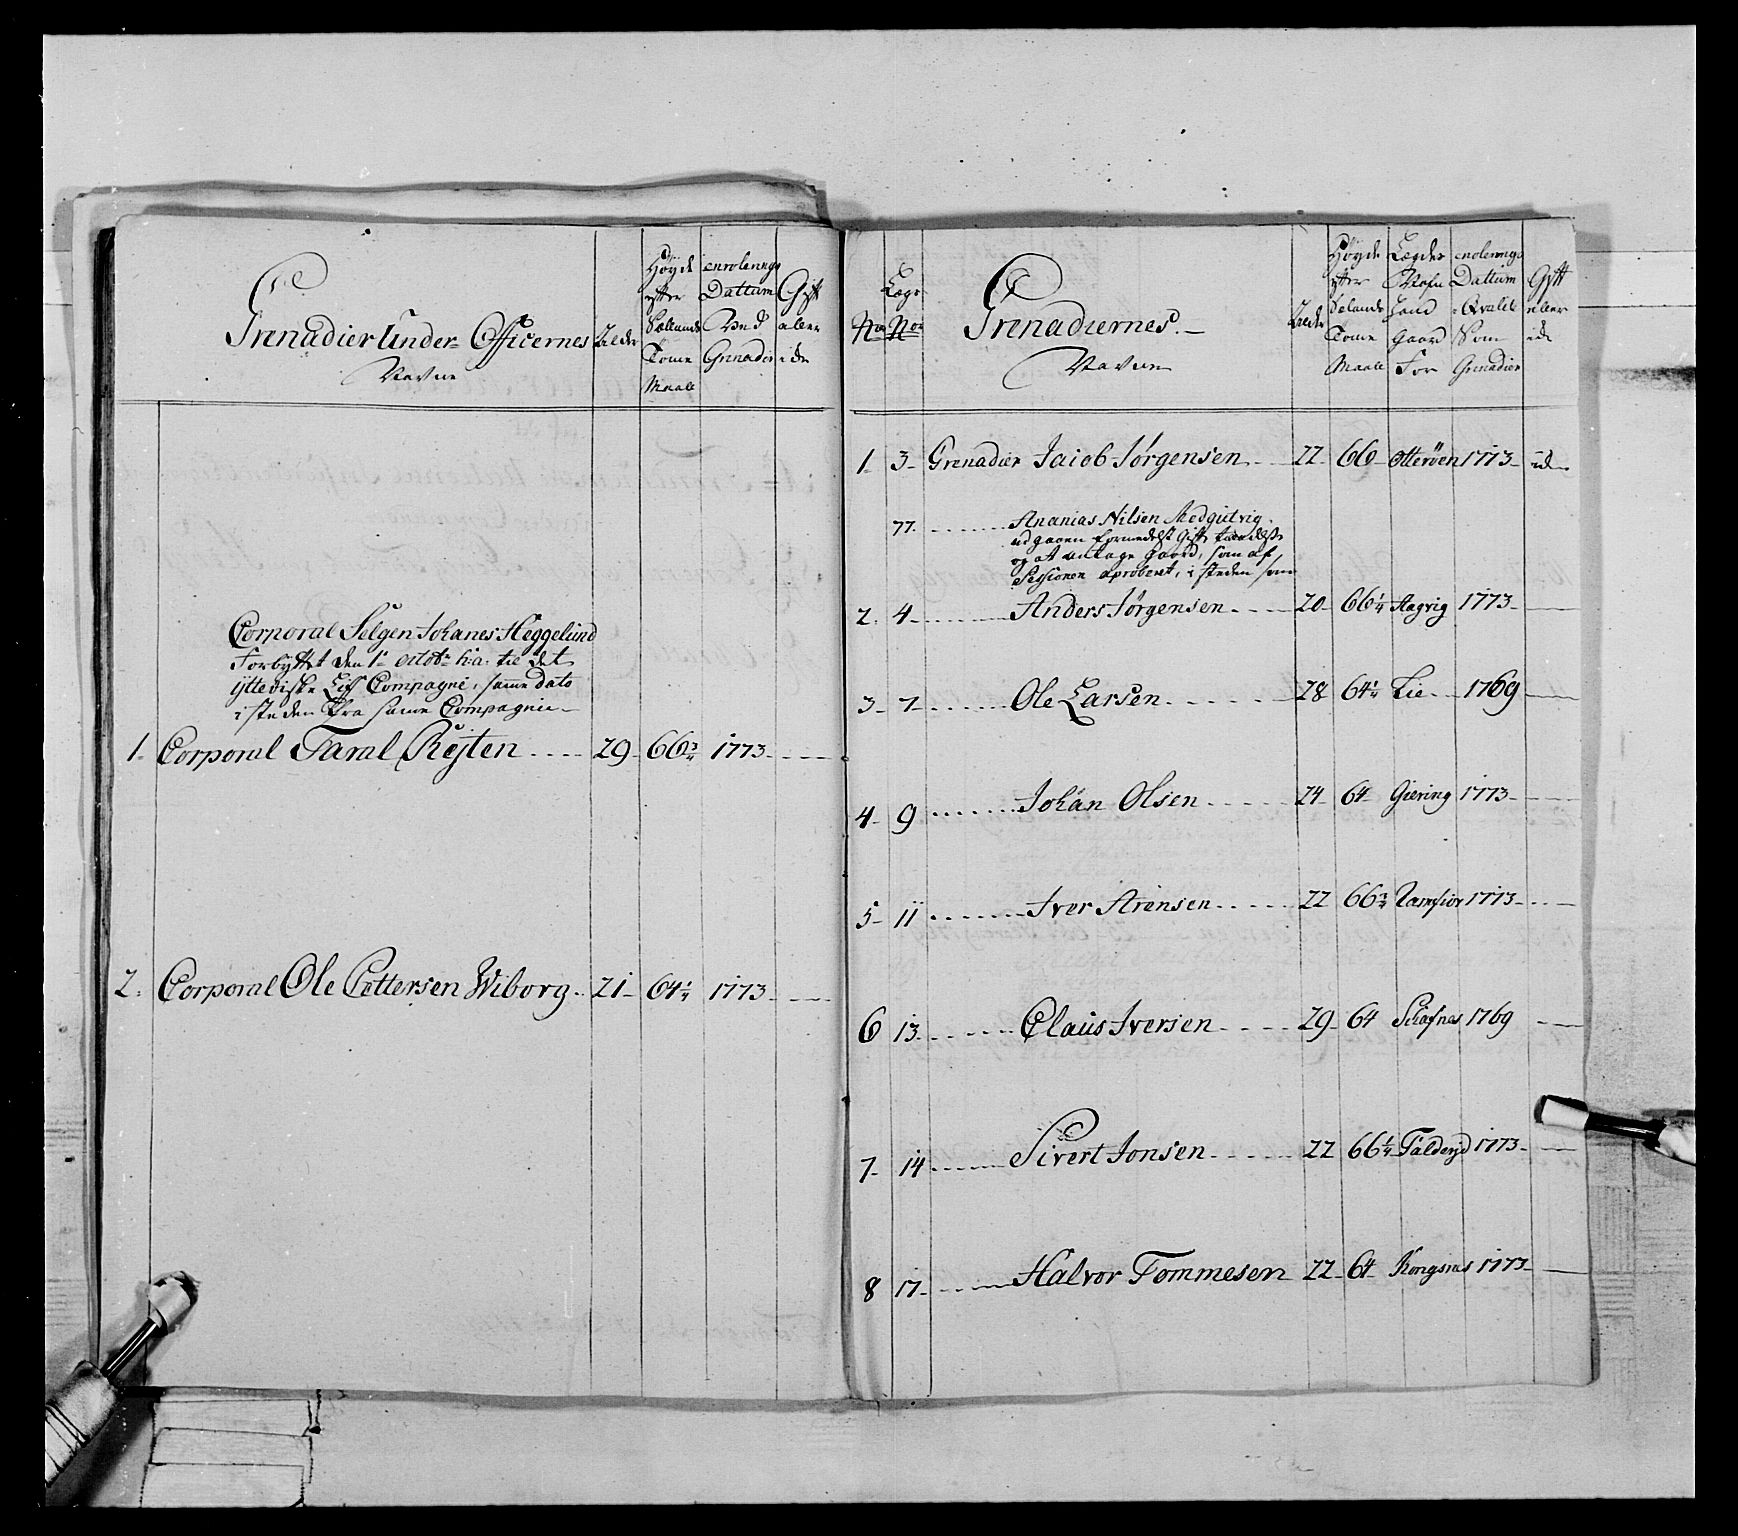 Grenadier Under=Officernes
Navne
Alder
Høyde
efter
Siellands
Tome
Maale
enrolerings
Dattum
Ved
Grenader
Gift
eller
ide
Corporal Selgen Johanes Heggelund
Forbyttet den 1te octobr h: a: til det
ytterøiske Lif Compagnie, samme dato
i steden fra samme Compagnie
1. Corporal Taral Rejten 29 66 3/4 1773
2. Corporal Ole Pettersen Wiborg 21 64 1/4 1773
No
Lægs
No
Grenadiernes.
Navne
Alder
Høyde
efter
Sielands
Tome
Maale
Lægder
Nafn
Gaard
For
enolerings
Dattum
Som
Grenadier
Gift
eller
ide
1 3 Grenadier Jacob Jørgensen 22 66 Otterøen 1773 id
77. Ananias Nilsen Medgutvig
udgaaen formedelst Gift
og at antage Gaard, som af
Sessionen aproberet, i steden som
2. 4 Anders Jørgensen 20 66 1/4 Aagvig 1773
3 7 Ole Larsen 28 64 1/4 Lie 1769
4 9 Johan Olsen 24 64 Giering 1773
5 11 Iver Arensen 22 66 3/4 Ramsiov 1773
6 13 Claus Iversen 29 64 Skafnes 1769
7 14 Sivert Jonsen 22 66 1/4 1773
8 17 Halvor Tommesen 22 64 Kongsnes 1773